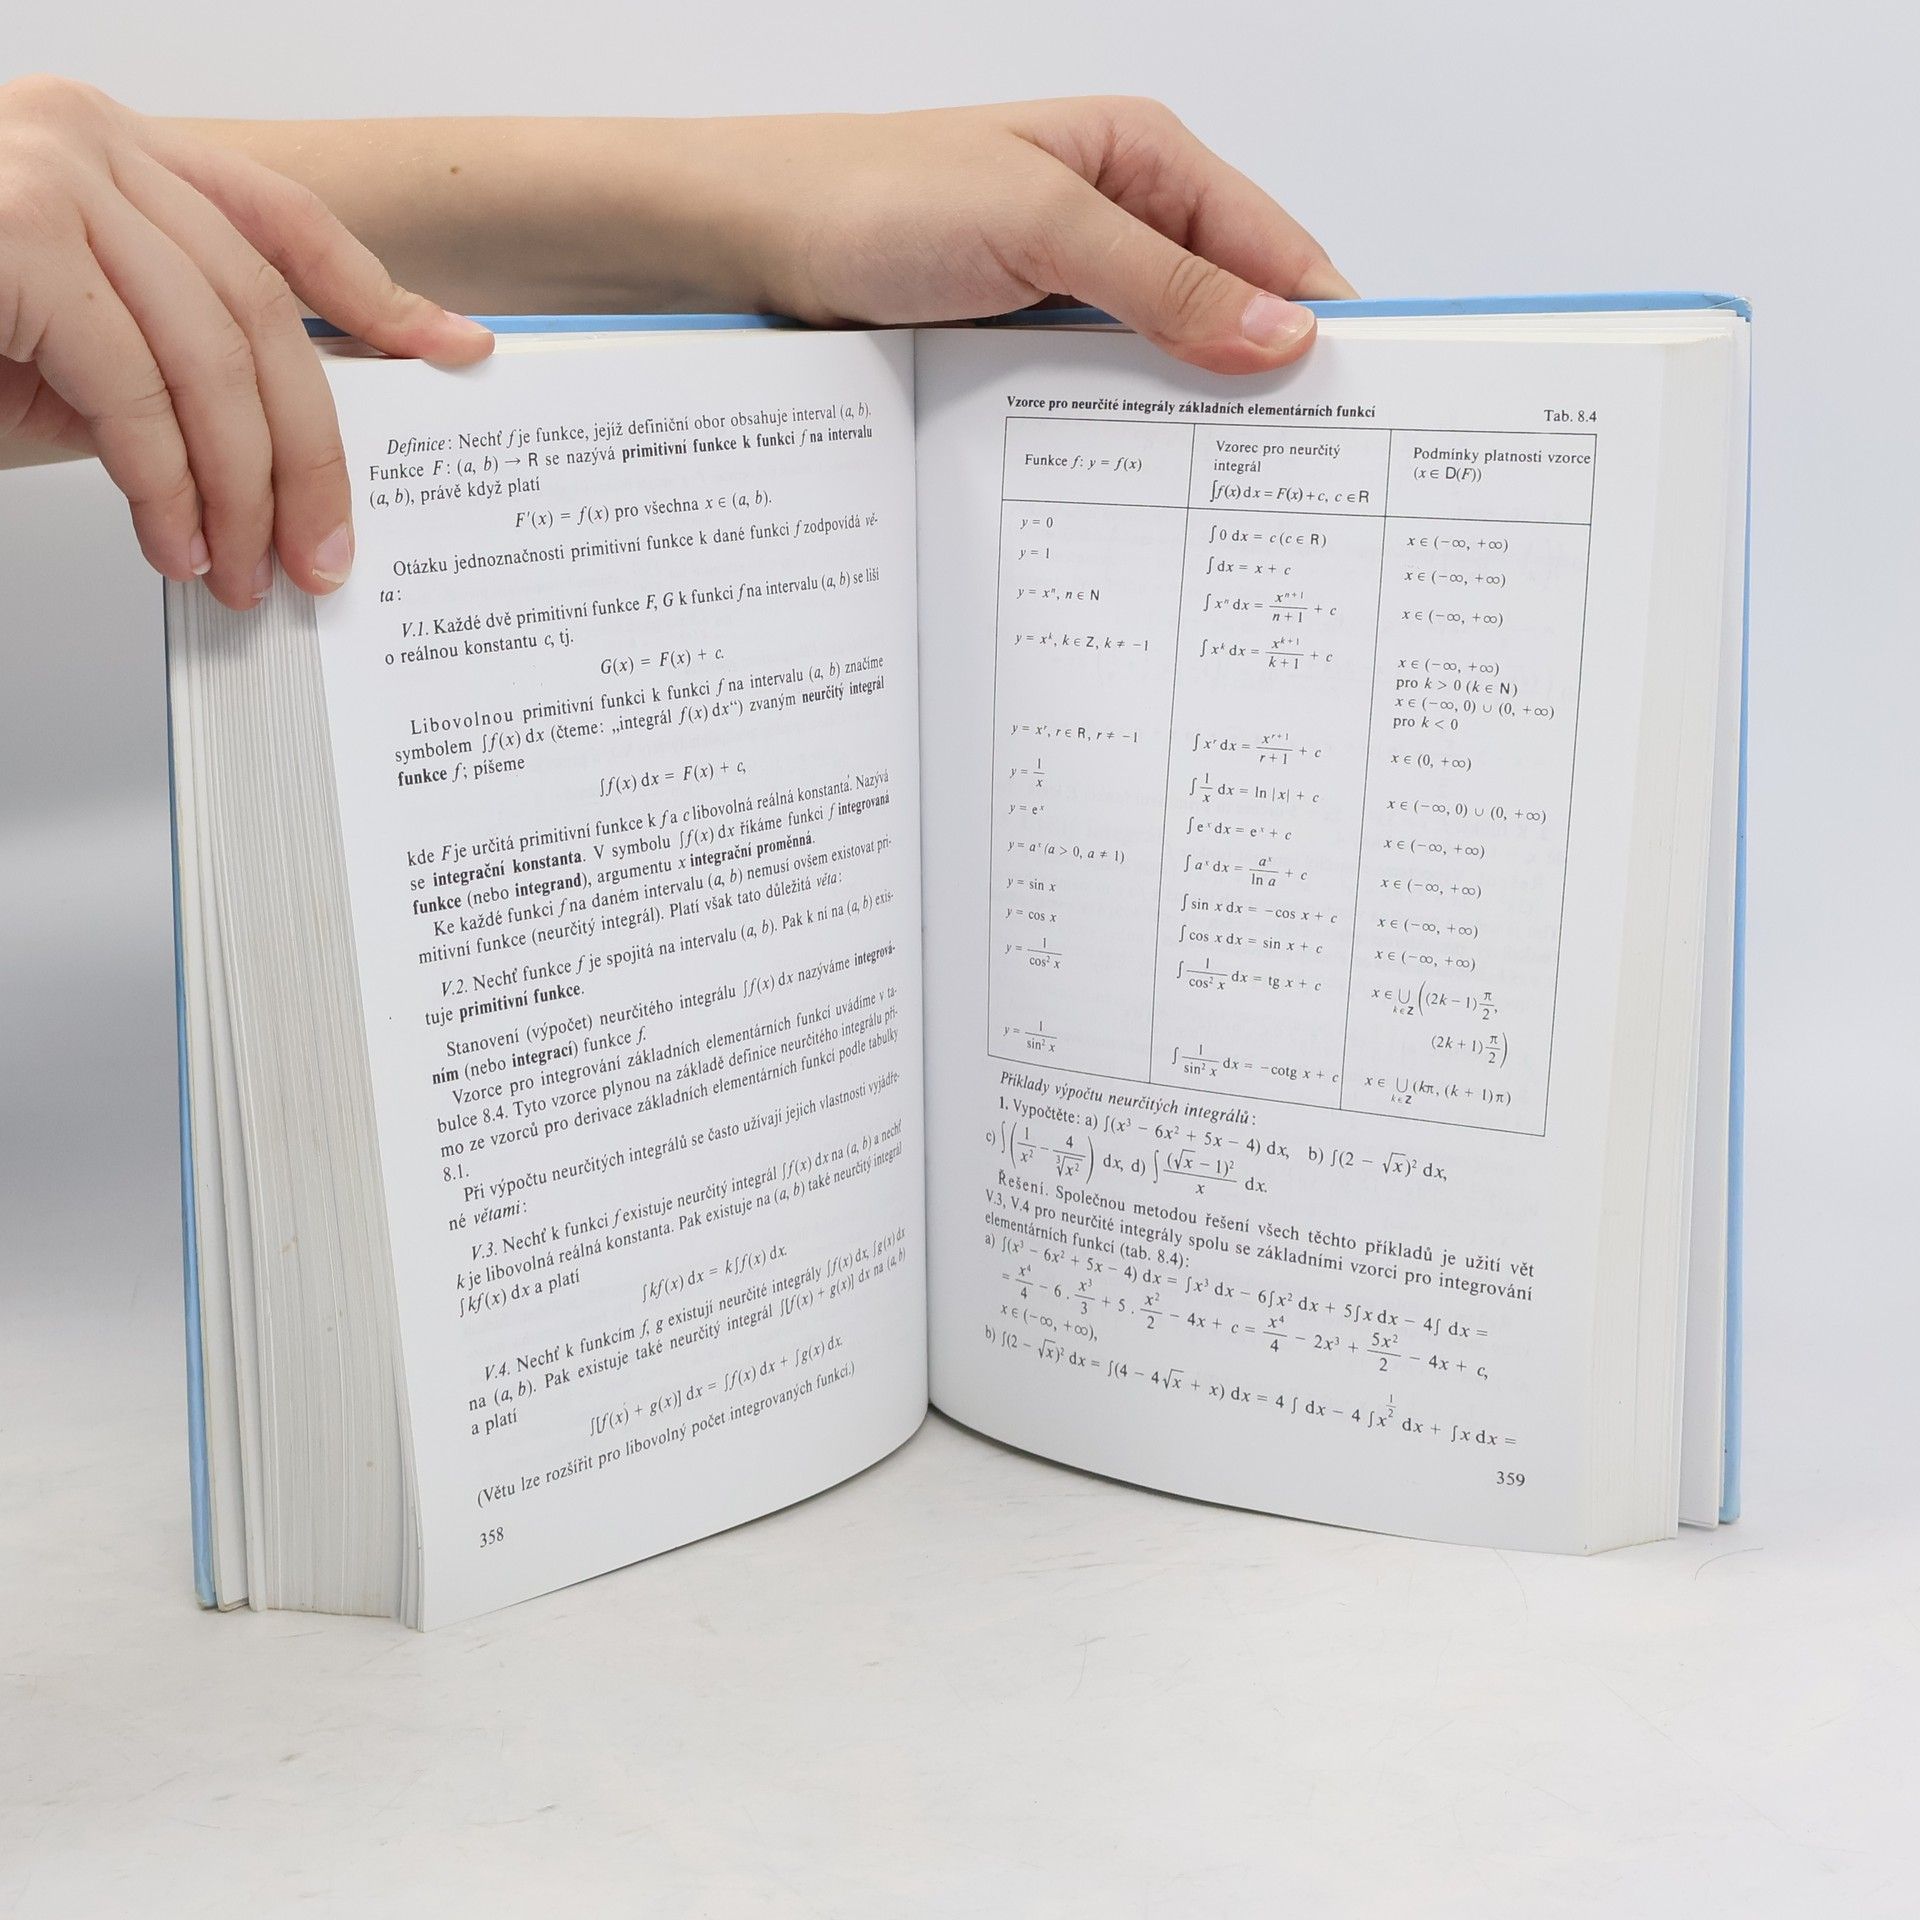 Definice: Nechť f je funkce, jejíž definiční obor obsahuje interval (a, b).
Funkce F: (a, b) → R se nazývá primitivní funkce k funkci f na intervalu
(a, b), právě když platí
F′(x) = f(x) pro všechna x ∈ (a, b).
Otázku jednoznačnosti primitivní funkce k dané funkci f zodpovídá vě-
ta:
V.1. Každé dvě primitivní funkce F, G k funkci f na intervalu (a, b) se liší
o reálnou konstantu c, tj.
G(x) = F(x) + c.
Libovolnou primitivní funkci k funkci f na intervalu (a, b) značíme
symbolem ∫f(x) dx (čteme: „integrál f(x) dx“) zvaným neurčitý integrál
funkce f; píšeme
∫f(x) dx = F(x) + c,
kde F je určitá primitivní funkce k f a c libovolná reálná konstanta. Nazývá
se integrační konstanta. V symbolu ∫f(x) dx říkáme funkci f integrovaná
funkce (nebo integrand), argumentu x integrační proměnná.
Ke každé funkci f na daném intervalu (a, b) nemusí ovšem existovat pri-
mitivní funkce (neurčitý integrál). Platí však tato důležitá věta:
V.2. Nechť funkce f je spojitá na intervalu (a, b). Pak k ní na (a, b) exis-
tuje primitivní funkce.
Stanovení (výpočet) neurčitého integrálu ∫f(x) dx nazýváme integrová-
ním (nebo integrací) funkce f.
Vzorce pro integrování základních elementárních funkcí uvádíme v ta-
bulce 8.4. Tyto vzorce plynou na základě definice neurčitého integrálu pří-
mo ze vzorců pro derivace základních elementárních funkcí podle tabulky
8.1.
Při výpočtu neurčitých integrálů se často užívají jejich vlastnosti vyjádře-
né větami:
V.3. Nechť k funkci f existuje neurčitý integrál ∫f(x) dx na (a, b) a nechť
k je libovolná reálná konstanta. Pak existuje na (a, b) také neurčitý integrál
∫kf(x) dx a platí
∫kf(x) dx = k∫f(x) dx.
V.4. Nechť k funkcím f, g existují neurčité integrály ∫f(x) dx, ∫g(x) dx
na (a, b). Pak existuje také neurčitý integrál ∫[f(x) + g(x)] dx na (a, b)
a platí
∫[f(x) + g(x)] dx = ∫f(x) dx + ∫g(x) dx.
(Větu lze rozšířit pro libovolný počet integrovaných funkcí.)
358
Vzorce pro neurčité integrály základních elementárních funkcí Tab. 8.4
Funkce f: y = f(x) Vzorec pro neurčitý integrál ∫f(x) dx = F(x) + c, c ∈ R Podmínky platnosti vzorce (x ∈ D(F))
y = 0 ∫0 dx = c (c ∈ R) x ∈ (−∞, +∞)
y = 1 ∫dx = x + c x ∈ (−∞, +∞)
y = xⁿ, n ∈ N ∫xⁿ dx = xⁿ⁺¹/(n + 1) + c x ∈ (−∞, +∞)
y = xᵏ, k ∈ Z, k ≠ −1 ∫xᵏ dx = xᵏ⁺¹/(k + 1) + c x ∈ (−∞, +∞)
pro k > 0 (k ∈ N)
x ∈ (−∞, 0) ∪ (0, +∞)
pro k < 0
y = xʳ, r ∈ R, r ≠ −1 ∫xʳ dx = xʳ⁺¹/(r + 1) + c x ∈ (0, +∞)
y = 1/x ∫1/x dx = ln |x| + c x ∈ (−∞, 0) ∪ (0, +∞)
y = eˣ ∫eˣ dx = eˣ + c x ∈ (−∞, +∞)
y = aˣ (a > 0, a ≠ 1) ∫aˣ dx = aˣ/ln a + c x ∈ (−∞, +∞)
y = sin x ∫sin x dx = −cos x + c x ∈ (−∞, +∞)
y = cos x ∫cos x dx = sin x + c x ∈ (−∞, +∞)
y = 1/cos² x ∫1/cos² x dx = tg x + c x ∈ ∪ k∈Z ((2k − 1) π/2,
(2k + 1) π/2)
y = 1/sin² x ∫1/sin² x dx = −cotg x + c x ∈ ∪ k∈Z (kπ, (k + 1)π)
Příklady výpočtu neurčitých integrálů:
1. Vypočtěte: a) ∫(x³ − 6x² + 5x − 4) dx, b) ∫(2 − √x)² dx,
c) ∫(1/x² − 4/∛x²) dx, d) ∫(√x − 1)²/x dx.
Řešení. Společnou metodou řešení všech těchto příkladů je užití vět
V.3, V.4 pro neurčité integrály spolu se základními vzorci pro integrování
elementárních funkcí (tab. 8.4):
a) ∫(x³ − 6x² + 5x − 4) dx = ∫x³ dx − 6∫x² dx + 5∫x dx − 4∫ dx =
= x⁴/4 − 6 . x³/3 + 5 . x²/2 − 4x + c = x⁴/4 − 2x³ + 5x²/2 − 4x + c,
x ∈ (−∞, +∞),
b) ∫(2 − √x)² dx = ∫(4 − 4√x + x) dx = 4 ∫ dx − 4 ∫x^(1/2) dx + ∫x dx =
359